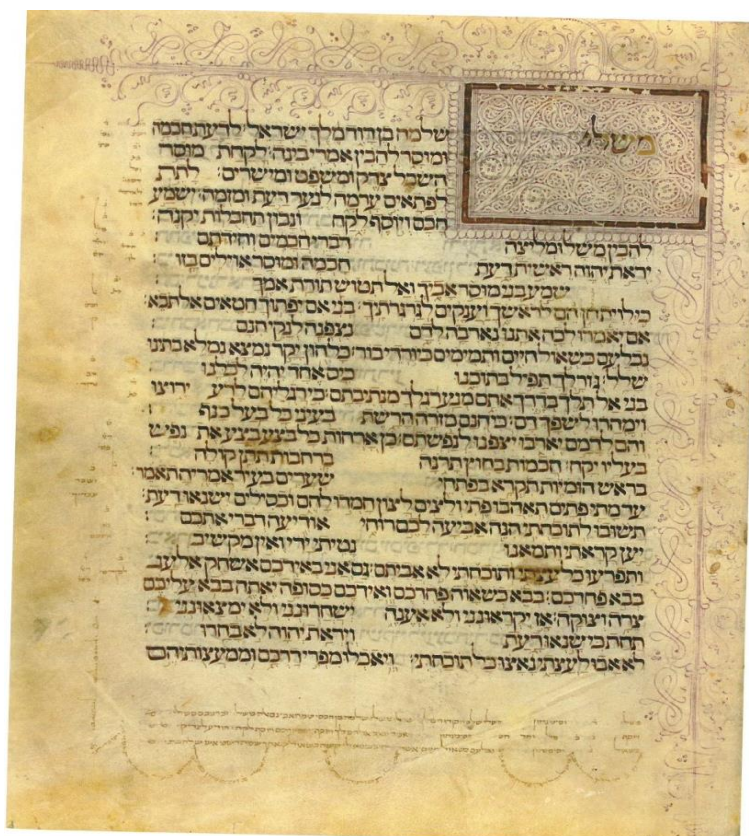 משלי
שלמה בן דוד מלך ישראל׃ לדעת חכמה
ומוסר להבין אמרי בינה׃ לקחת מוסר
השכל צדק ומשפט ומישרים׃ לתת
לפתאים ערמה לנער דעת ומזמה׃ ישמע
חכם ויוסף לקח ונבון תחבלות יקנה׃
להבין משל ומליצה דברי חכמים וחידתם׃
יראת יהוה ראשית דעת חכמה ומוסר אוילים בזו׃
שמע בני מוסר אביך ואל תטוש תורת אמך
כי לוית חן הם לראשך וענקים לגרגרתיך׃ בני אם יפתוך חטאים אל תבא׃
אם יאמרו לכה אתנו נארבה לדם נצפנה לנקי חנם
נבלעם כשאול חיים ותמימים כיורדי בור׃ כל הון יקר נמצא נמלא בתינו
שלל׃ גורלך תפיל בתוכנו כיס אחד יהיה לכלנו
בני אל תלך בדרך אתם מנע רגלך מנתיבתם׃ כי רגליהם לרע ירוצו
וימהרו לשפך דם׃ כי חנם מזרה הרשת בעיני כל בעל כנף
והם לדמם יארבו יצפנו לנפשתם׃ כן ארחות כל בצע בצע את נפש
בעליו יקח׃ חכמות בחוץ תרנה ברחבות תתן קולה
בראש הומיות תקרא בפתחי שערים בעיר אמריה תאמר׃
עד מתי פתים תאהבו פתי וליצים לצון חמדו להם וכסילים ישנאו דעת׃
תשובו לתוכחתי הנה אביעה לכם רוחי אודיעה דברי אתכם
יען קראתי ותמאנו נטיתי ידי ואין מקשיב׃
ותפרעו כל עצתי ותוכחתי לא אביתם׃ גם אני באידכם אשחק אלעג
בבא פחדכם׃ בבא כשאוה פחדכם ואידכם כסופה יאתה בבא עליכם
צרה וצוקה׃ אז יקראונני ולא אענה ישחרונני ולא ימצאונני׃
תחת כי שנאו דעת ויראת יהוה לא בחרו׃
לא אבו לעצתי נאצו כל תוכחתי׃ ויאכלו מפרי דרכם וממעצותיהם